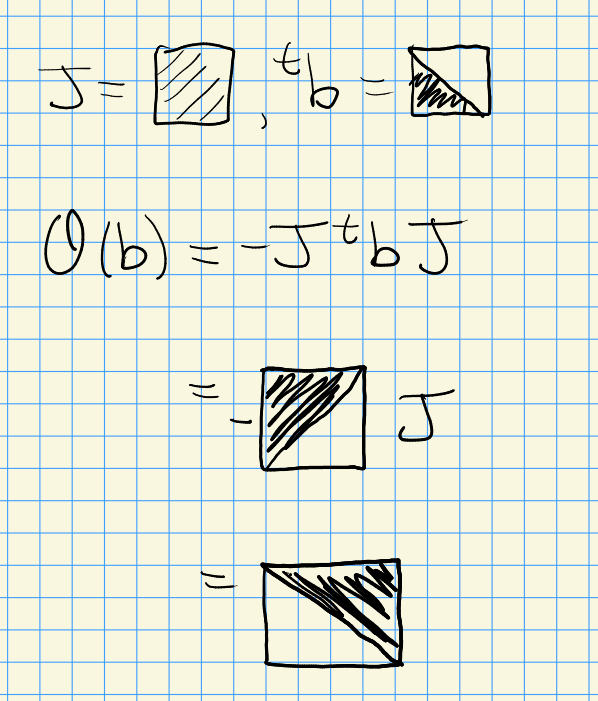 J = , ᵗb =
θ(b) = -JᵗbJ
= - J
=